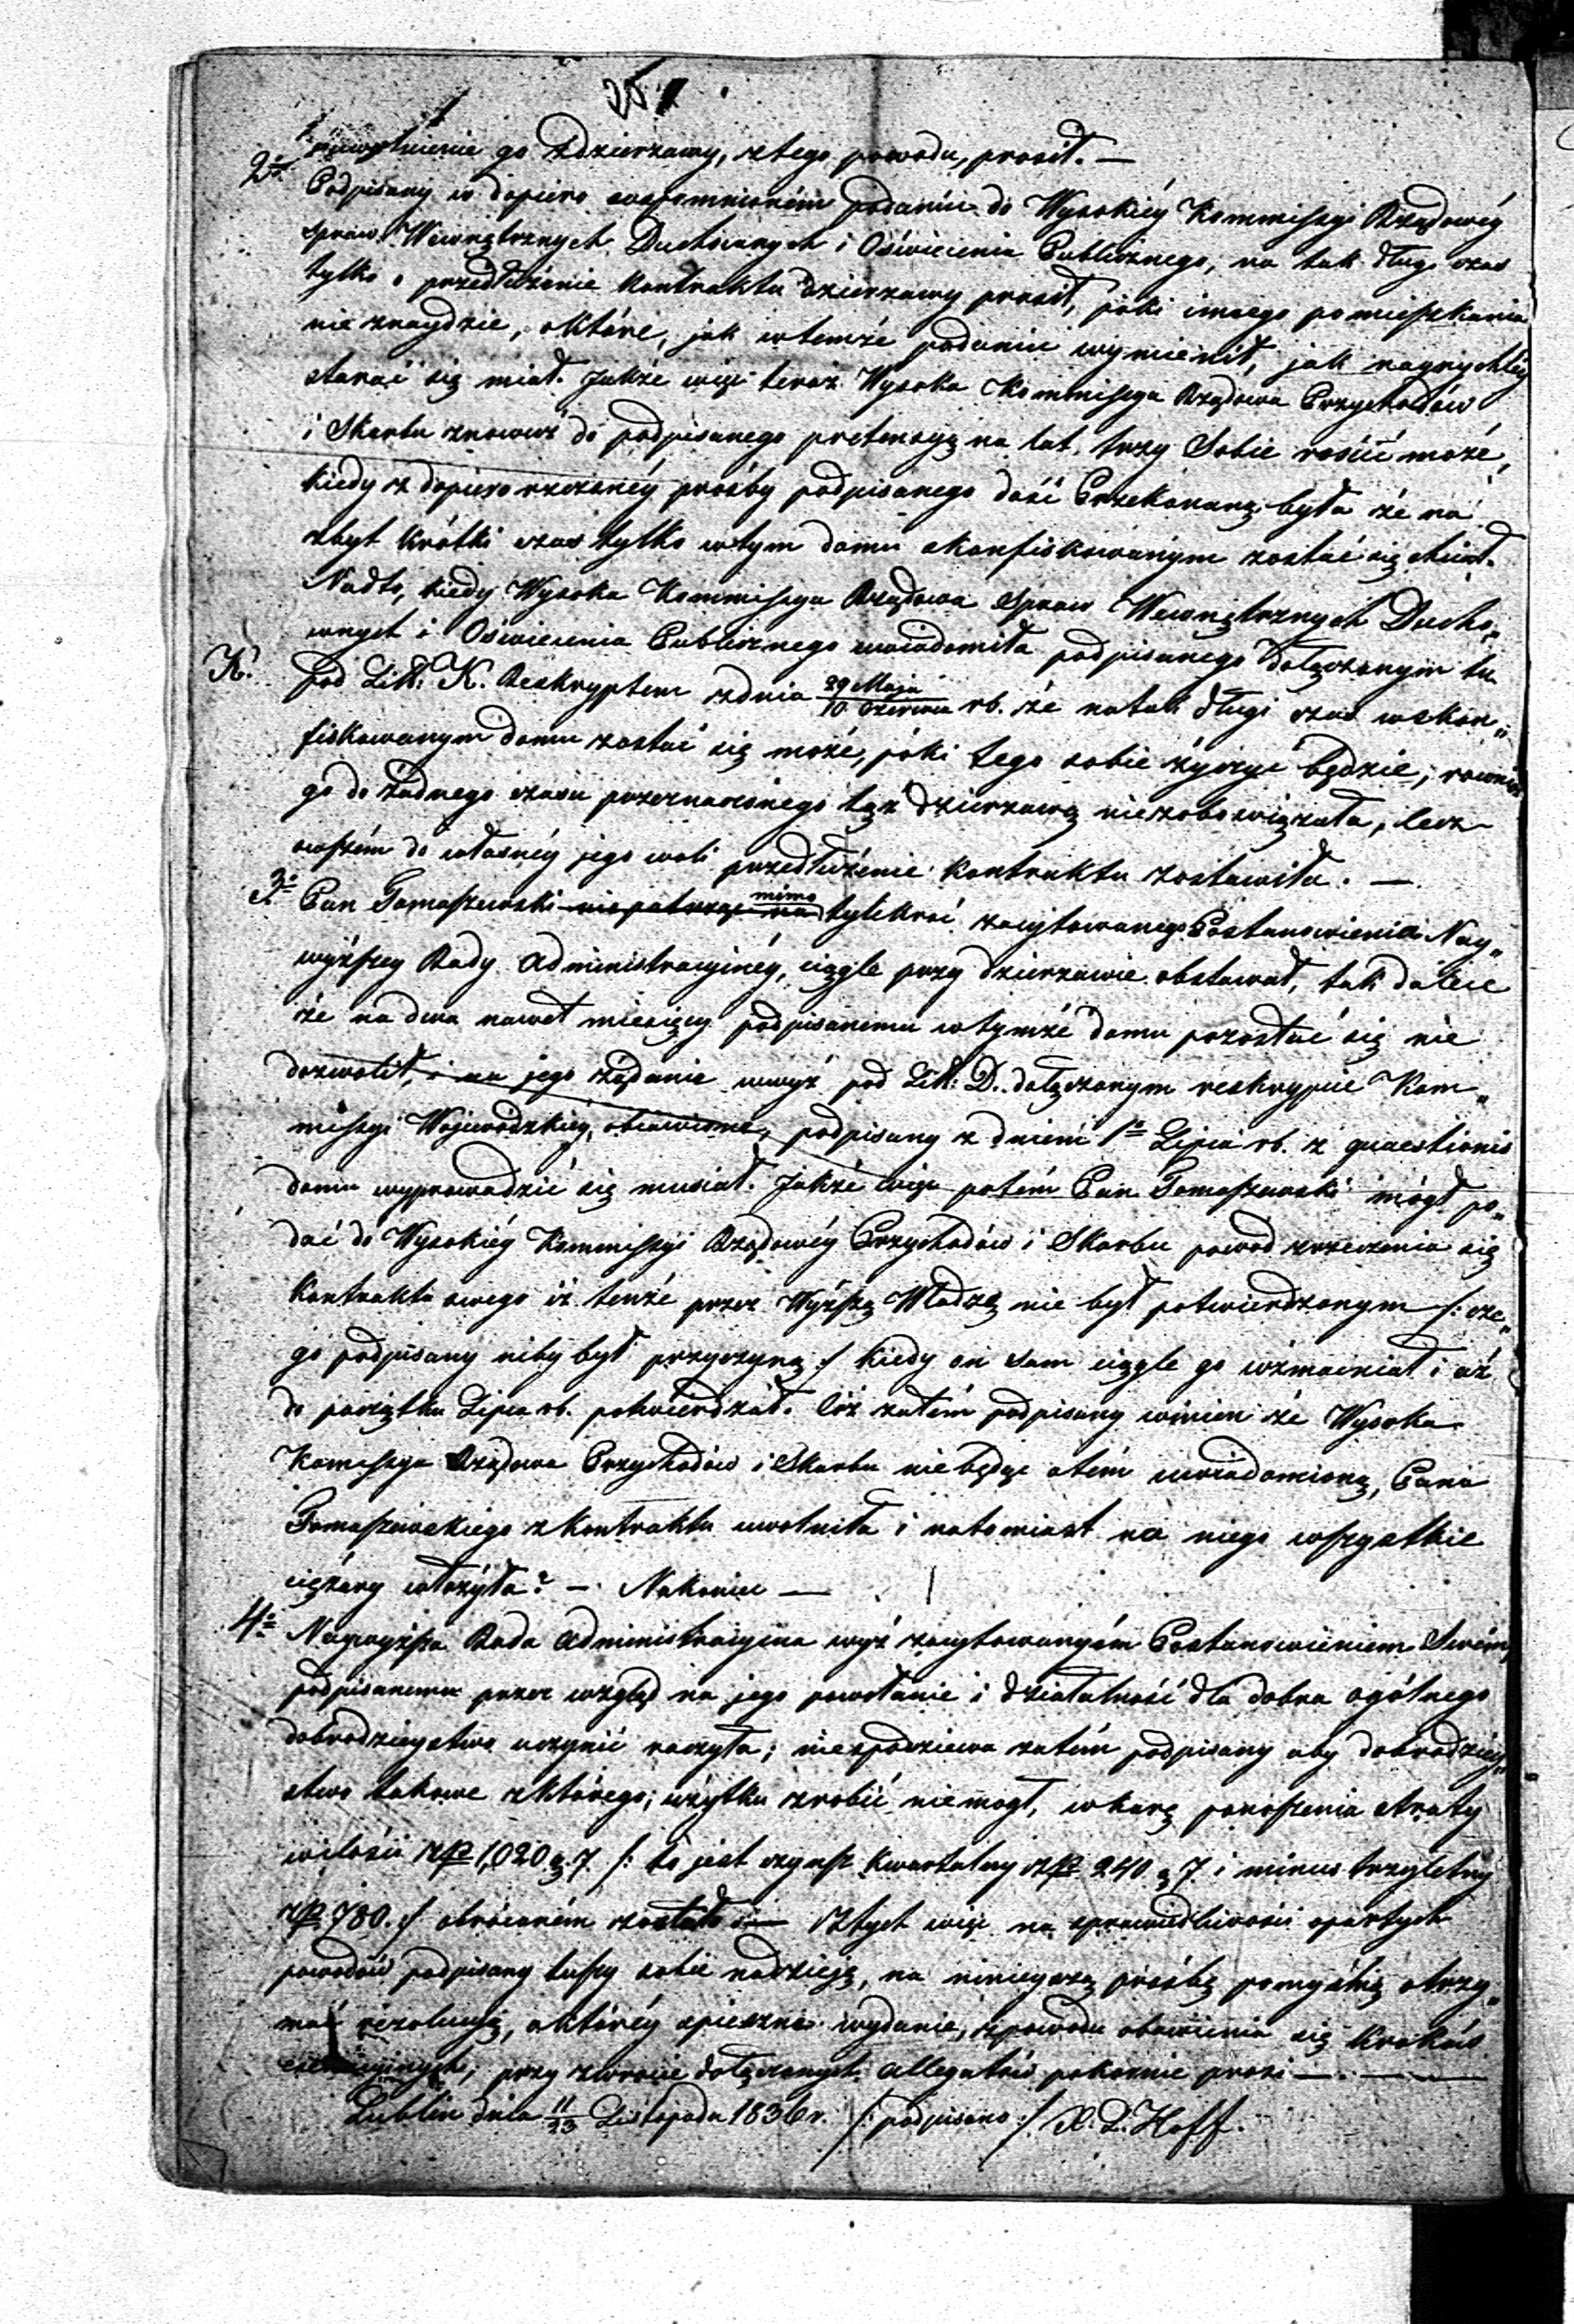 uwolnienie go z dzierzawy, z tego powodu, prosił. —
2o Podpisany w dopiero wspomnioném podaniu do Wysokiéy Kommissyi Rządowéy
Spraw Wewnętrznych Duchownych i Oświecenia Publicznego, na tak długi czas
tylko o przedłużenie kontraktu dzierzawy prosił, póki innego pomieszkania
nie znaydzie, o które, jak w temże podaniu wymienił, jak nayrychléy
starać się miał. Jakże więc teraz Wysoka Kommissya Rządowa Przychodów
i Skarbu znowuż do podpisanego pretensyą na lat trzy Sobie rościć może,
kiedy z dopiero rzeczonéy prośby podpisanego dość Przekonaną była że na
zbyt krótki czas tylko w tym domu skonfiskowanym zostać się chciał.
Nadto, kiedy Wysoka Kommissya Rządowa Spraw Wewnętrznych Ducho„
wnych i Oświecenia Publicznego uwiadomiła podpisanego dołączonym tu
K. pod Litt: K. Reskryptem z dnia 29 Maja / 10 Czerwca rb. że na tak długi czas w skon„
fiskowanym domu zostać się może, póki tego sobie życzyć będzie; równie
go do żadnego czasu przeznaczonego tąż dzierzawą niezobowiązała, lecz
owszém do własnéy jego woli przedłużenie kontraktu zostawiła. —
3o Pan Tomaszewski nie patrząc na mimo tylekroć zacytowanego Postanowienia Nay„
wyższey Rady Administracyinéy, ciągle przy dzierzawie obstawał, tak dalece
że na dwa nawet miesięcy podpisanemu w tymże domu pozostać się nie
dozwolił, i na jego żądanie wwyż pod Litt: D. dołączonym reskrypcie Kom„
missyi Wojewódzkiey, obiawione, podpisany z dniem 1o Lipca rb. z quaestionis
domu wyprowadzić się musiał. Jakże więc potém Pan Tomaszewski mógł po„
dać do Wysokiéy Kommissyi Rządowéy Przychodów i Skarbu powód zrzeczenia się
kontraktu swego iż tenże przez Wyższą Władzę nie był potwierdzonym /: cze„
go podpisany niby był przyczyną :/ kiedy on sam ciągle go wzmacniał i aż
do początku Lipca rb. potwierdzał. Cóż zatém podpisany winien że Wysoka
Komissya Rządowa Przychodów i Skarbu nie będąc otém uwiadomioną, Pana
Tomaszewskiego z kontraktu uwolniła i natomiast na niego wszystkie
ciężary włożyła? — Nakoniec —
4o Naywyższa Rada Administracyina wyż zacytowanyém Postanowieniem Swém,
podpisanemu przez wzgląd na jego powołanie i działalność dla dobra ogólnego
dobrodzieystwo uczynić raczyła; niespodziewa zatém podpisany aby dobrodziey„
stwo takowe z którego, użytku zrobić niemógł, w karę ponoszenia straty
wilości złp 1,020 g. 7. /: to jest czynsz kwartalny złp 240 g 7. i minus trzyletny
złp 780. :/ obróconém zostało — Z tych więc na sprawiedliwości opartych
powodów podpisany tuszy sobie nadzieję, na ninieyszą prośbę pomyślną otrzy„
mać rezolucyą, o któréy spieszne wydanie, z powodu obawienia się kroków
exekucyjnych, przy zwrocie dołączonych allegatów pokornie prosi —
Lublin dnia 11/23 Listopada 1836 r. /: podpisano :/ X. L. Hoff.